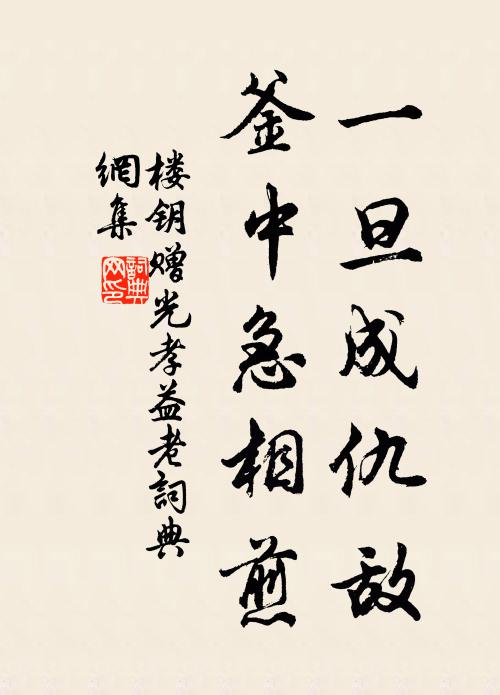 一旦成仇敌
釜中急相煎
楼钥赠光孝益老詞典
網集
詞典
网印